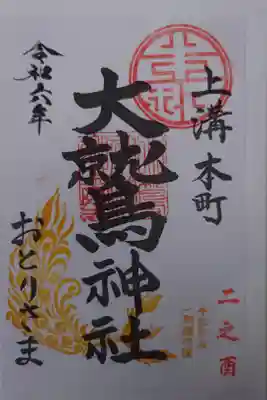 上溝本町
二之酉
大鷲神社
令和六年
おとりさま